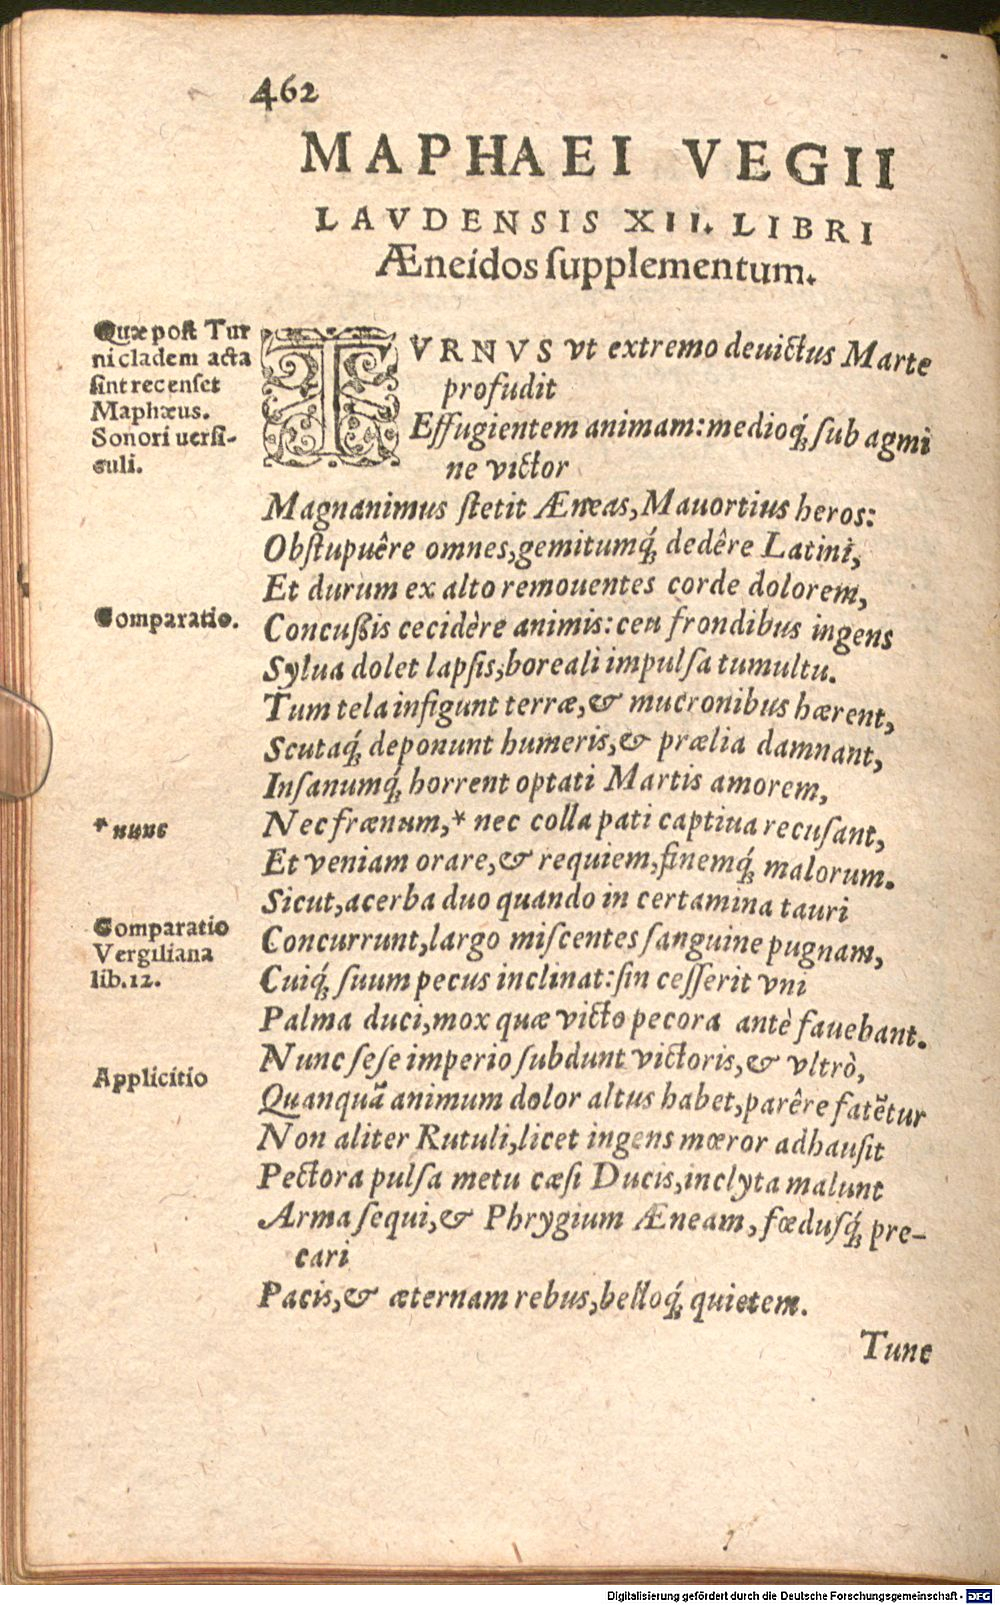 462
MAPHAEI VEGII
LAVDENSIS XII. LIBRI
Æneidos ſupplementum.
Quæ poſt Tur
ni cladem acta
ſint recenſet
Maphæus.
Sonori uerſi-
culi.
TVRNVS vt extremo deuictus Marte
profudit
Effugientem animam: medioq́; ſub agmi
ne victor
Magnanimus ſtetit Æneas, Mauortius heros:
Obſtupuêre omnes, gemitumq́; dedêre Latini,
Et durum ex alto remouentes corde dolorem,
Comparatio.
Concußis cecidère animis: ceu frondibus ingens
Sylua dolet lapſis, boreali impulſa tumultu.
Tum tela infigunt terræ, & mucronibus hærent,
Scutaq́; deponunt humeris, & prælia damnant,
Inſanumq́; horrent optati Martis amorem,
* nunc
Nec frænum, * nec colla pati captiua recuſant,
Et veniam orare, & requiem, finemq́; malorum.
Sicut, acerba duo quando in certamina tauri
Comparatio
Vergiliana
lib. 12.
Concurrunt, largo miſcentes ſanguine pugnam,
Cuiq́; ſuum pecus inclinat: ſin ceſſerit vni
Palma duci, mox quæ victo pecora antè fauebant.
Nunc ſeſe imperio ſubdunt victoris, & vltrò,
Applicitio
Quanquā animum dolor altus habet, parêre fatētur
Non aliter Rutuli, licet ingens mœror adhauſit
Pectora pulſa metu cæſi Ducis, inclyta malunt
Arma ſequi, & Phrygium Æneam, fœduſq́; pre-
cari
Pacis, & æternam rebus, belloq́; quietem.
Tunc
Digitalisierung gefördert durch die Deutsche Forschungsgemeinschaft - DFG